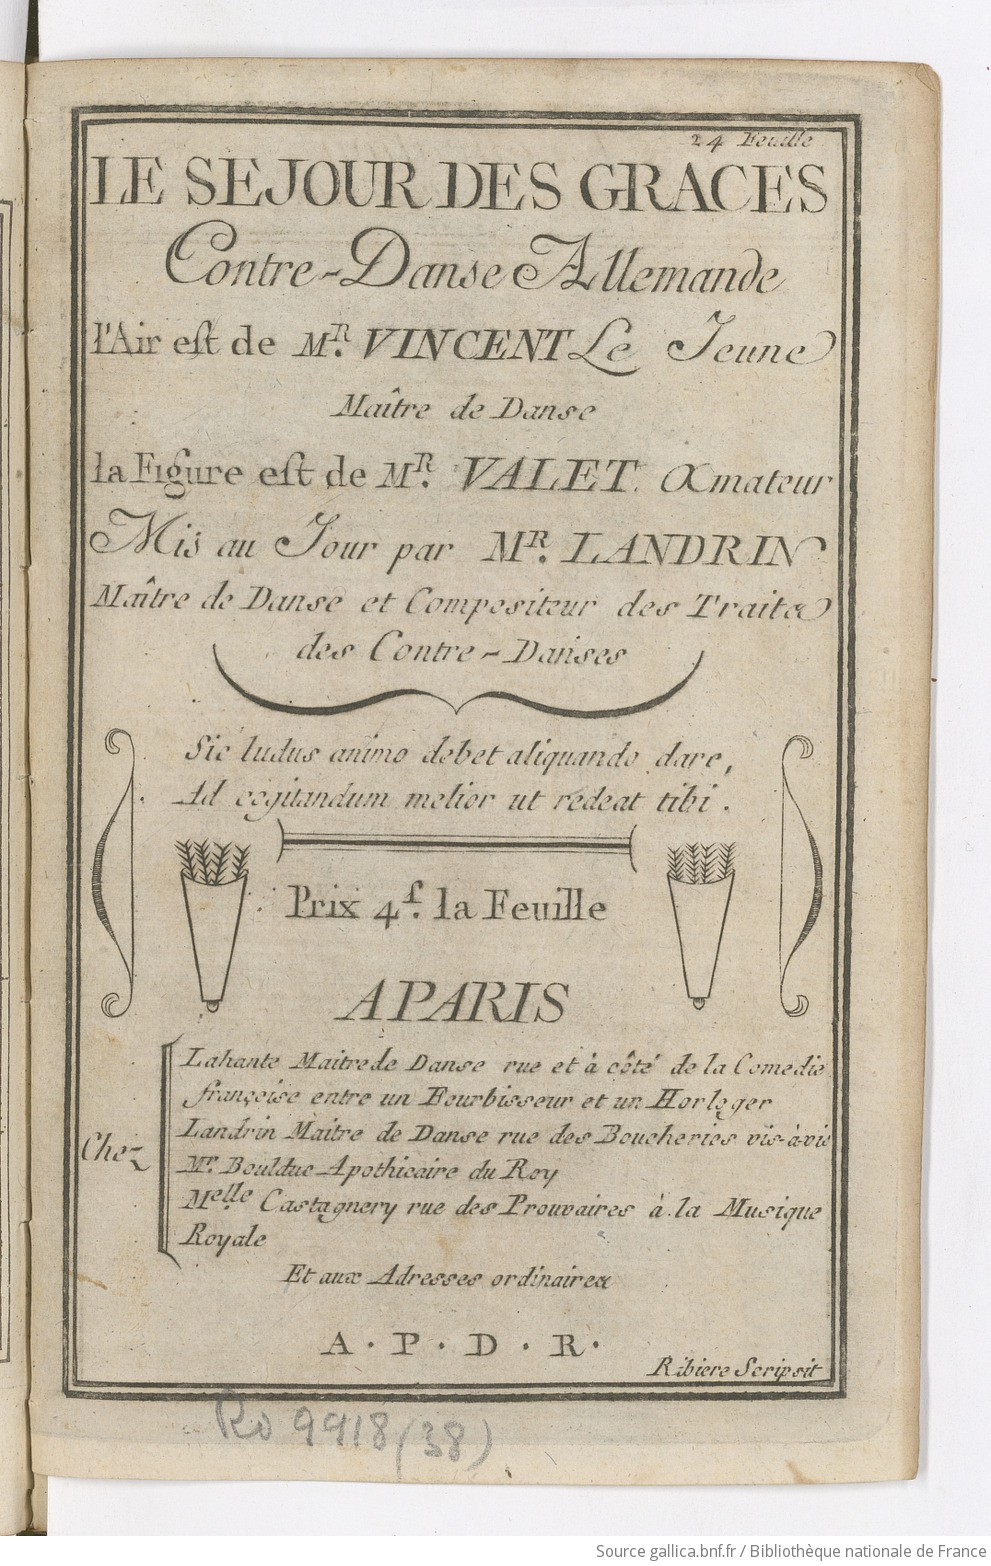 24 Feuille
LE SEJOUR DES GRACES
Contre-Danse Allemande
l'Air est de MR. VINCENT Le Jeune
Maître de Danse
la Figure est de MR. VALET. Amateur
Mis au Jour par MR. LANDRIN
Maître de Danse et Compositeur des Traités
des Contre-Danses
Sic ludus animo debet aliquando dare,
Ad cogitandum melior ut redeat tibi.
Prix 4f. la Feuille
A PARIS
Chez
Lahante Maitre de Danse rue et à côté de la Comedie
françoise entre un Fourbisseur et un Horloger
Landrin Maitre de Danse rue des Boucheries vis-à-vis
Mr. Boulduc Apothicaire du Roy
Melle. Castagnery rue des Prouvaires à la Musique
Royale
Et aux Adresses ordinaires
A. P. D. R.
Ribiere Scripsit
Ro 9918 (38)
Source gallica.bnf.fr / Bibliothèque nationale de France